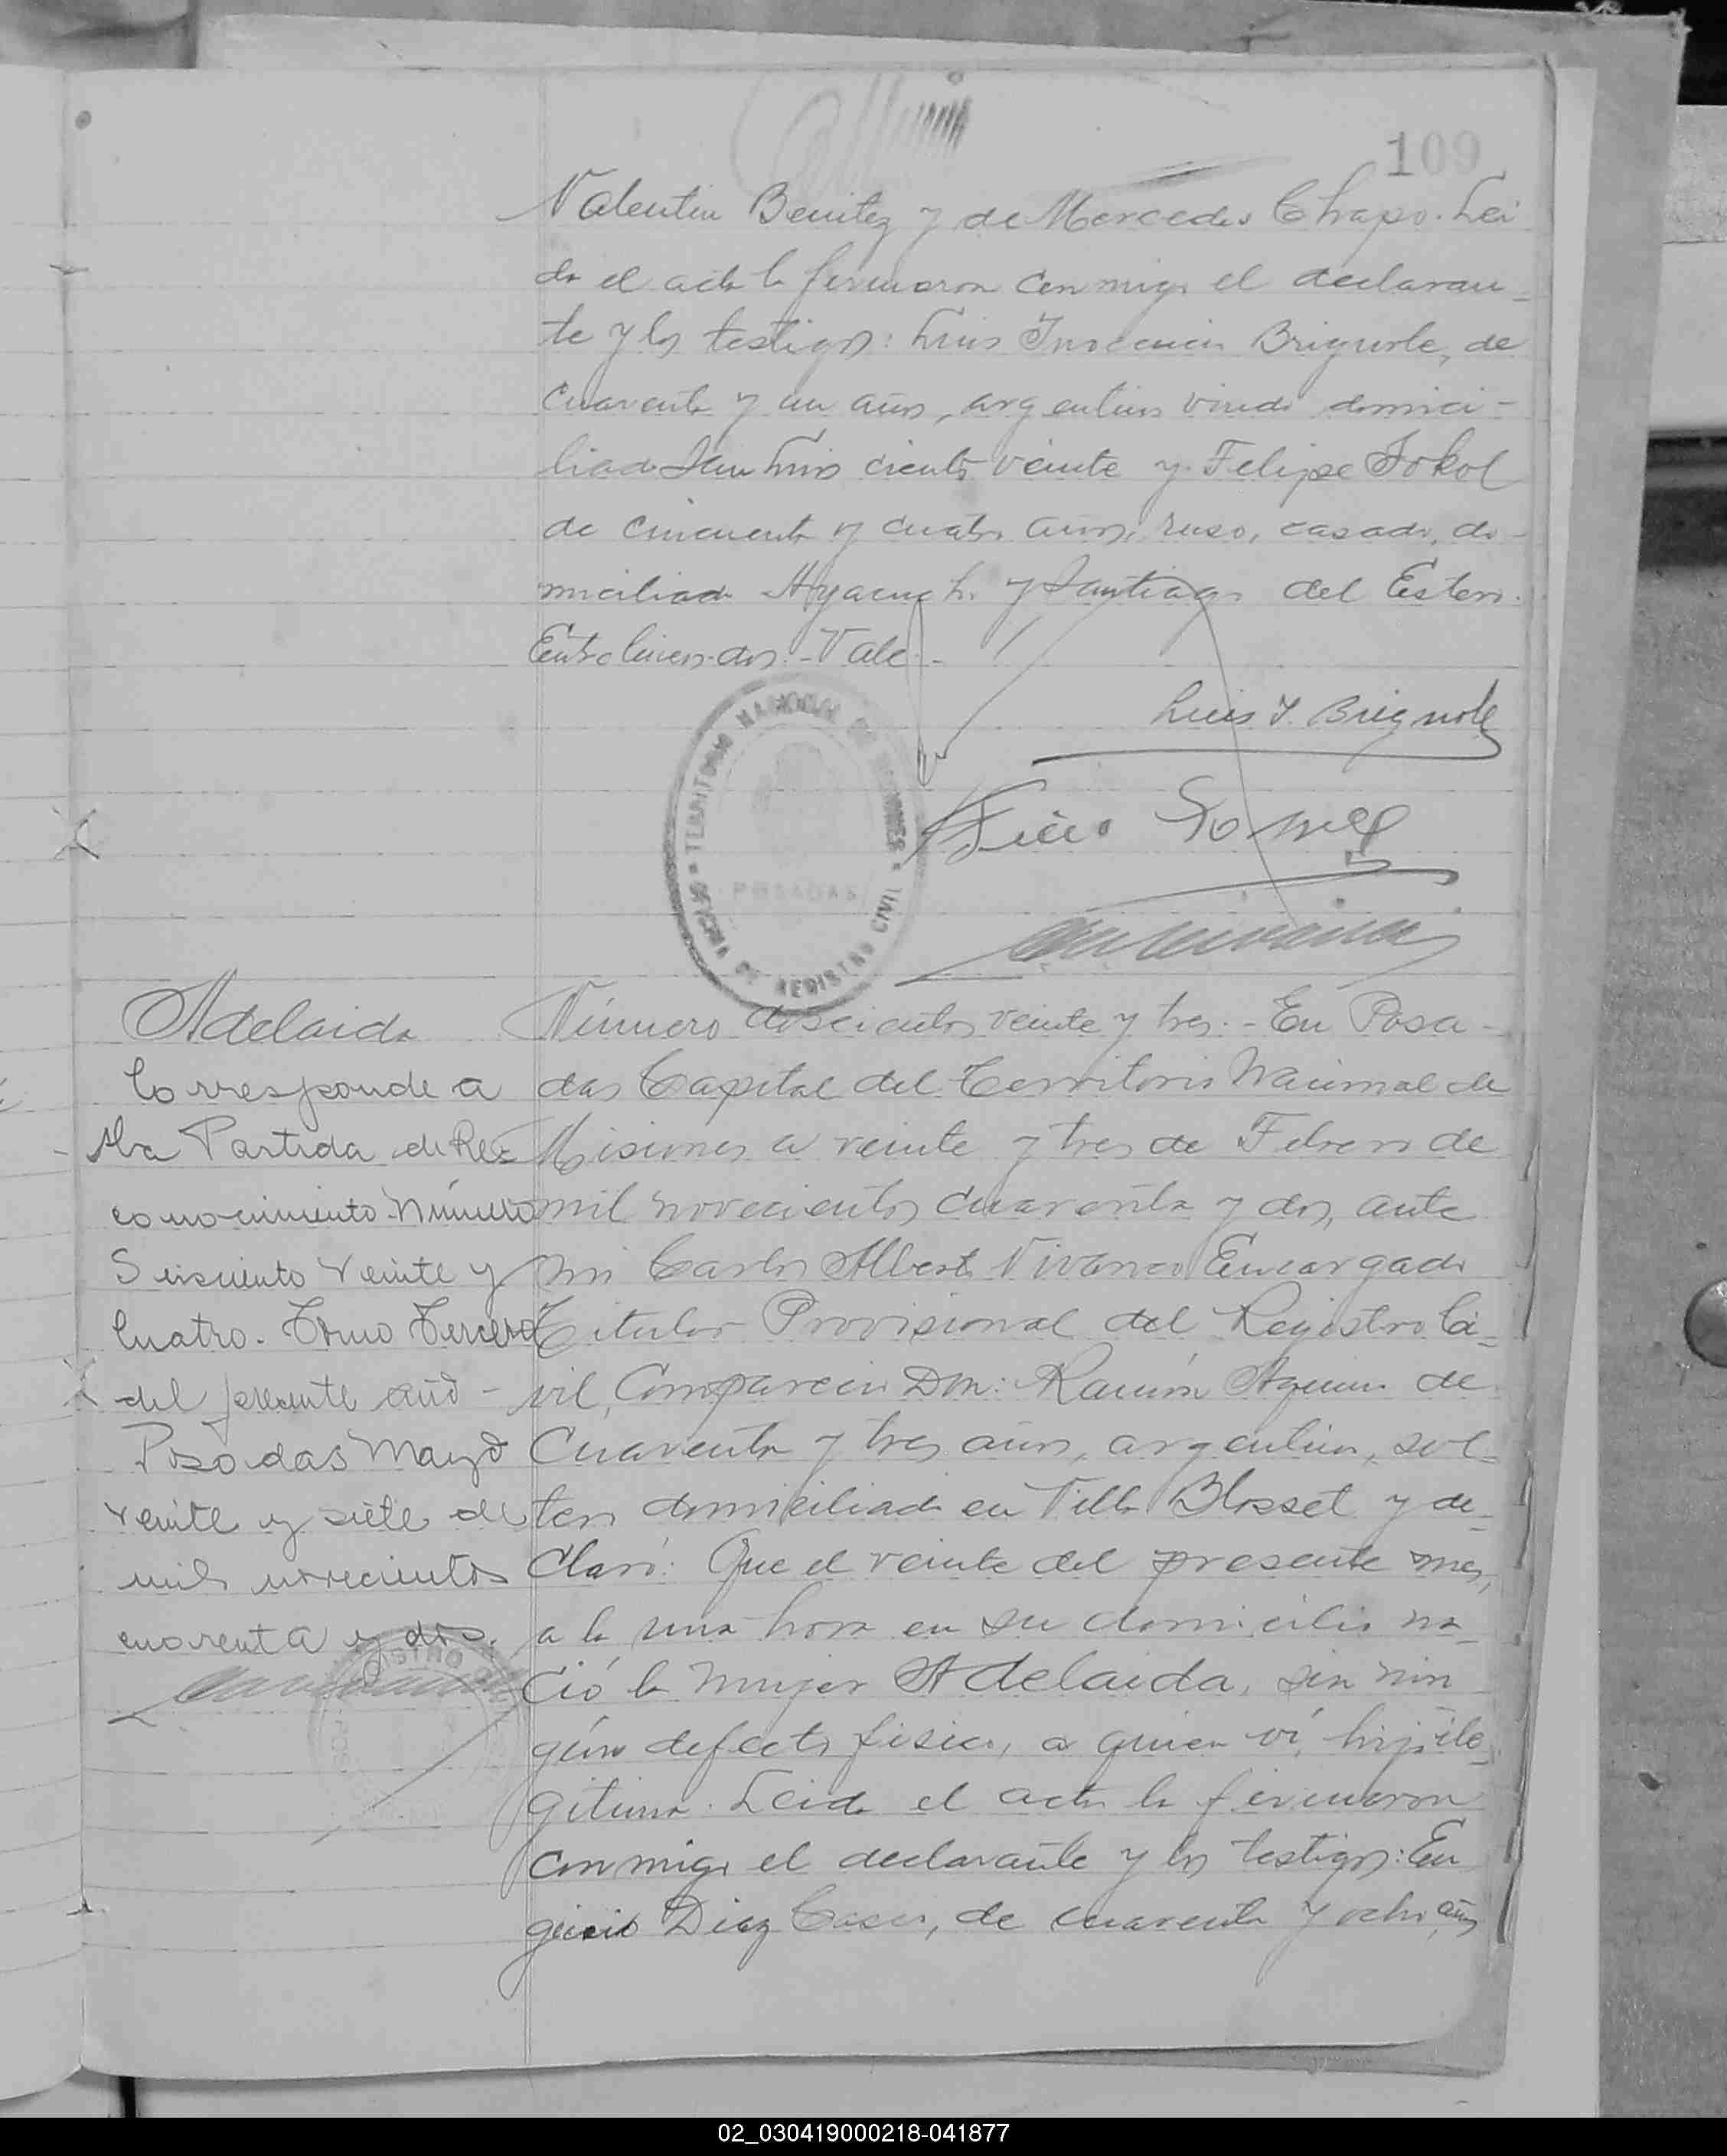 109
Valentin Benitez y de Mercedes Chapo. Lei
da el acta la firmaron conmigo el declaran-
te y los testigos: Luis Inocencio Brignole, de
cuarenta y un años, argentino viudo domici-
liado San Luis ciento veinte y Felipe Sokol
de cincuenta y cuatro años, ruso, casado, do-
miciliado Ayacucho y Santiago del Estero.
Entre lineas-dos-Vale-
Luis I. Brignole
TERRITORIO NACIONAL DE MISIONES
POSADAS
OFICINA DE REGISTRO CIVIL
Adelaida
Corresponde a
la Partida de Re=
conocimiento Número
Seisciento Veinte y
Cuatro. Tomo Tercero
del presente año-
Posadas Mayo
veinte y siete de
mil novecientos
cuarenta y dos.
Número doscientos veinte y tres.-En Posa-
das Capital del Territorio Nacional de
Misiones a veinte y tres de Febrero de
mil novecientos cuarenta y dos, ante
mi Carlos Alberto Vivanco Encargado
Titular Provisional del Registro Ci=
vil, Comparecio Don: Ramón Aquino de
Cuarenta y tres años, argentino, sol=
tero domiciliado en Villa Blosset y de=
claró: Que el veinte del presente mes,
a la una hora en su domicilio na-
ció la mujer Adelaida, sin nin
gún defecto fisico, a quien ví, hija ile=
gitima. Leida el acta la firmaron
conmigo el declarante y los testigos: Eu
genio Diaz Casco, de cuarenta y ocho años
02_030419000218-041877